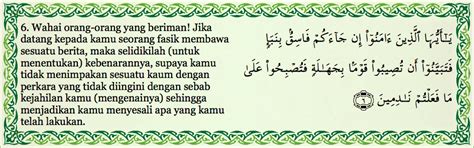 6. Wahai orang-orang yang beriman! Jika
datang kepada kamu seorang fasik membawa
sesuatu berita, maka selidikilah (untuk
menentukan) kebenarannya, supaya kamu
tidak menimpakan sesuatu kaum dengan
perkara yang tidak diingini dengan sebab
kejahilan kamu (mengenainya) sehingga
menjadikan kamu menyesali apa yang kamu
telah lakukan.
يَـٰٓأَيُّهَا ٱلَّذِينَ ءَامَنُوٓا۟ إِن جَآءَكُمْ فَاسِقٌۢ بِنَبَإٍ
فَتَبَيَّنُوٓا۟ أَن تُصِيبُوا۟ قَوْمًۢا بِجَهَـٰلَةٍ فَتُصْبِحُوا۟ عَلَىٰ
مَا فَعَلْتُمْ نَـٰدِمِينَ ٦